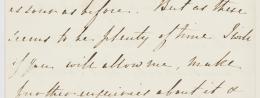 as soon as before. But as there
seems to be plenty of time I will
if you will allow me, make
further enquiries about it &